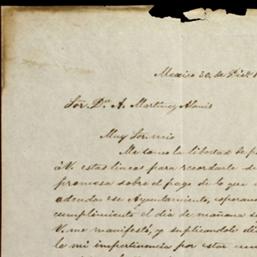 Mexico 20. de Dic
Sor. Dn. A. Martinez Alanis
Muy Sor. mio
Me tomo la libertad de
á V. estas lineas para recordarle
promesa sobre el pago de lo que
adenda ese Ayuntamiento, esperan
cumplimiento el dia de mañana
V. me manifestó, y suplicandole di
la mi impertinencia por estar